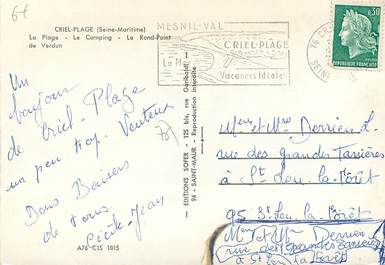 64
CRIEL-PLAGE (Seine-Maritime)
La Plage - Le Camping - Le Rond-Point
de Verdun
MESNIL-VAL
CRIEL-PLAGE
Vacances Idéales
76 CR
SEINE
0,30
REPUBLIQUE FRANÇAISE
Un
bonjour
de Criel-Plage
un peu trop Venteux
Bons Baisers
de tous
Cécile-Jean
A76 C15 1015
— EDITIONS SOFER - 125 bis, rue Garibaldi
94 - SAINT-MAUR - Reproduction interdite
Mme et Mr Derrien L
rue des grandes
à St Leu la Forêt
95 St Leu la Forêt
Mme Derrien
rue des grandes
à St Leu la Forêt